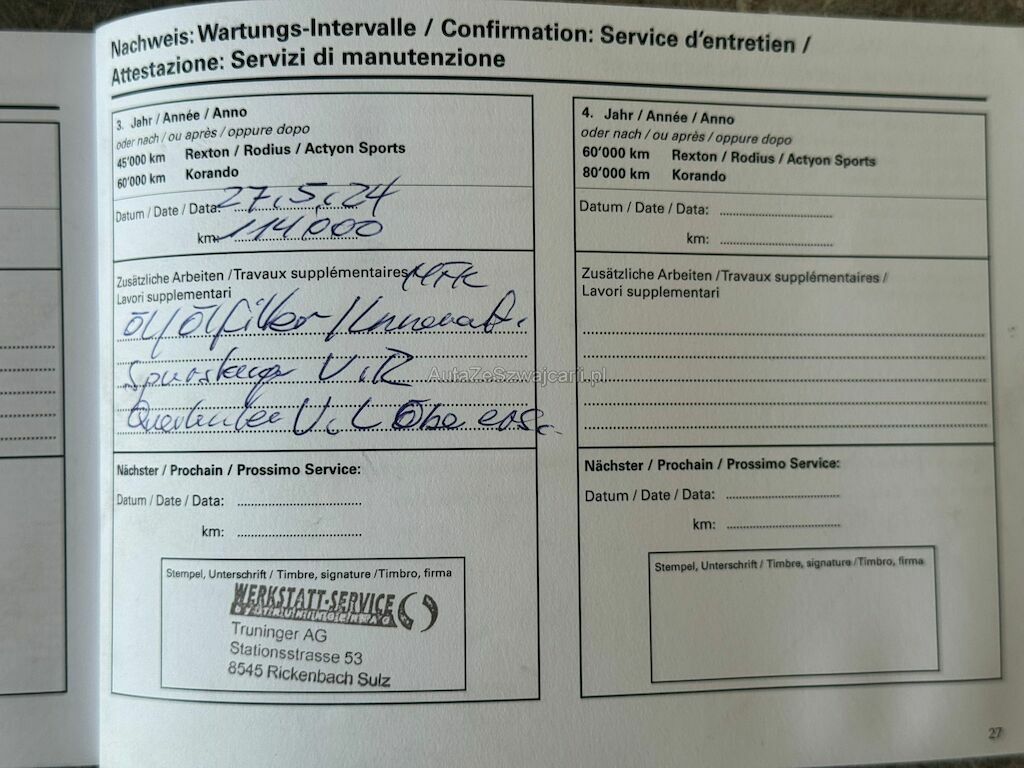 Nachweis: Wartungs-Intervalle / Confirmation: Service d'entretien /
Attestazione: Servizi di manutenzione
3. Jahr / Année / Anno
oder nach / ou après / oppure dopo
45'000 km Rexton / Rodius / Actyon Sports
60'000 km Korando
Datum / Date / Data: 27.5.24
km: 114'000
Zusätzliche Arbeiten / Travaux supplémentaires MFK
Lavori supplementari
Öl/Ölfilter/Innenraumf.
Spurstange V.R
Querlenker V.L Obe ers.
Nächster / Prochain / Prossimo Service:
Datum / Date / Data:
km:
Stempel, Unterschrift / Timbre, signature / Timbro, firma
WERKSTATT-SERVICE
Truninger AG
Stationsstrasse 53
8545 Rickenbach Sulz
4. Jahr / Année / Anno
oder nach / ou après / oppure dopo
60'000 km Rexton / Rodius / Actyon Sports
80'000 km Korando
Datum / Date / Data:
km:
Zusätzliche Arbeiten / Travaux supplémentaires /
Lavori supplementari
Nächster / Prochain / Prossimo Service:
Datum / Date / Data:
km:
Stempel, Unterschrift / Timbre, signature / Timbro, firma
27
AutaZeSzwajcarii.pl